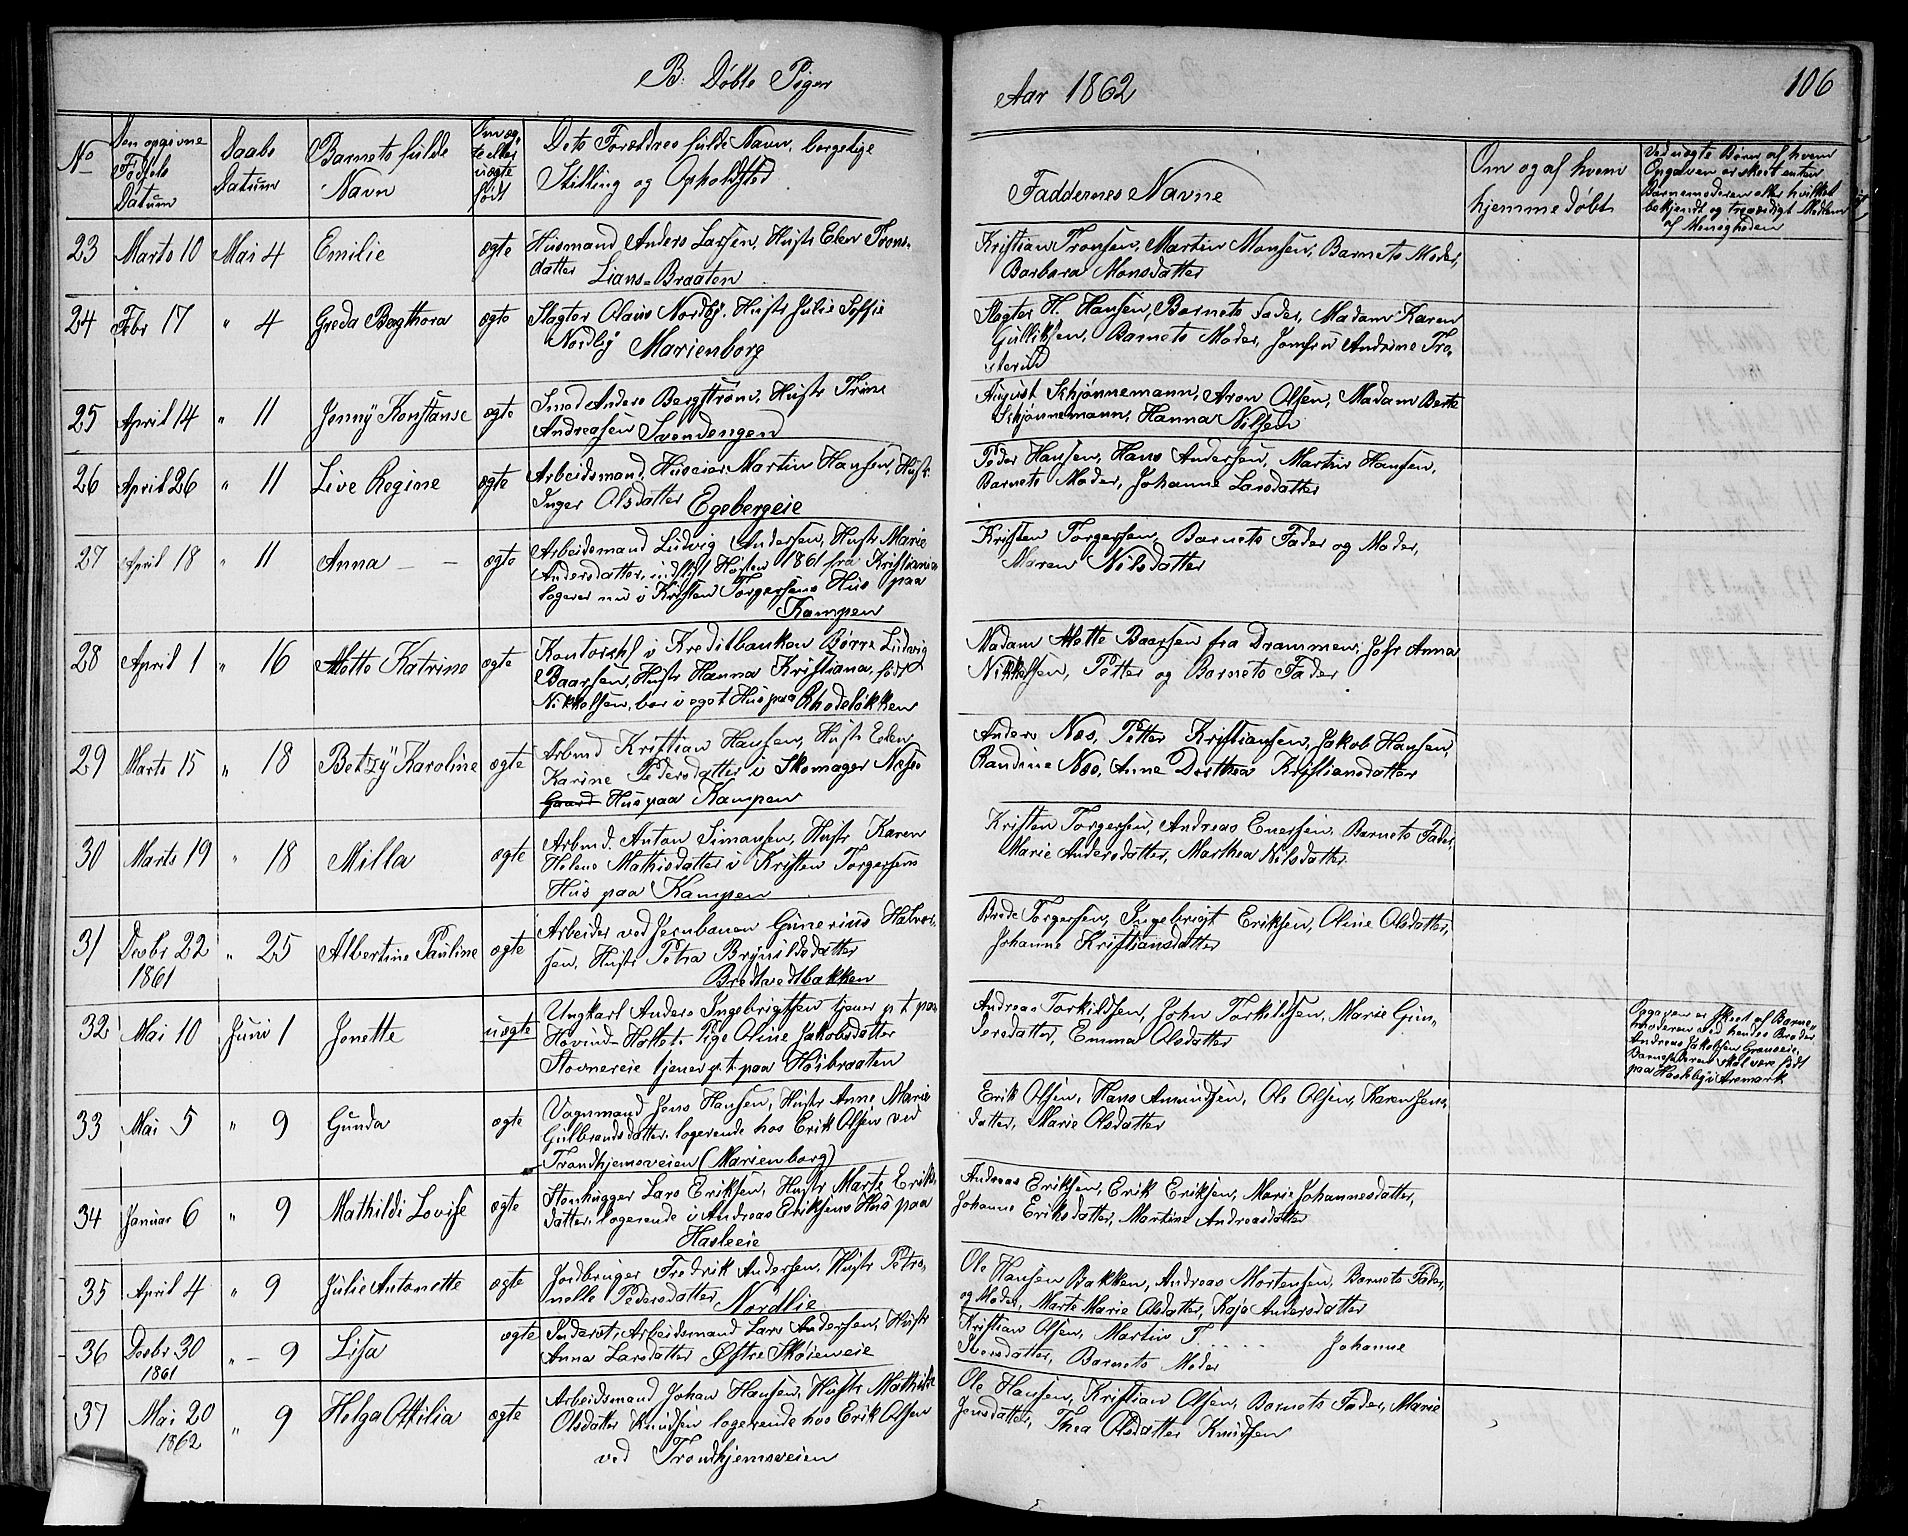 B. Døbte Piger
Aar 1862
106
No
Den opgivne Fødsels Datum
Daabs Datum
Barnets fulde Navn
Om ægte eller uægte født
Dets Forældres fulde Navn, borgelige Stilling og Opholdsted
Faddernes Navne
Om og af hvem hjemmedøbt
Ved uægte Børn af hvem Opgaven er skeet enten Barnemoderen eller hvilket bekjendt og troværdigt Medlem af Menigheden
23 Marts 10 Mai 4 Emilie ægte Husmand Anders Larsen, Hustr Elen Trons-
datter Lians-Braaten
Kristian Tronsen, Martin Monsen, Barnets Moder,
Barbara Monsdatter
24 Febr 17 " 4 Greda Bergthora ægte Slagter Olaus Nordby, Hustr Julie Soffie
Nordby Marienborg
Slagter H. Hansen, Barnets Fader, Madam Karen
Gulliksen, Barnets Moder, Jomfru Andrine Tro-
sterud
25 April 14 " 11 Jenny Konstanse ægte Smed Anders Bergstrøm, Hustr Trine
Andreasen Svendengen
August Schjønnemann, Aron Olsen, Madam Berte
Schjønnemann, Hanna Nilsen
26 April 26 " 11 Live Regine ægte Arbeidsmand, Huseier Martin Hansen, Hustr
Inger Olsdatter Egebergeie
Peder Hansen, Hans Andersen, Martin Hansen,
Barnets Moder, Johanne Larsdatter
27 April 18 " 11 Anna - - ægte Arbeidsmand Ludvig Andersen, Hustr Marie
Andersdatter, indflyt Høsten 1861 fra Kristiania
logerer nu i Kristen Torgersens Hus paa
Kampen
Kristen Torgersen, Barnets Fader og Moder,
Maren Nilsdatter
28 April 1 " 16 Mette Katrine ægte Kontorchf i Kreditbanken Børre Ludvig
Baarsen, Hustr Hanna Kristiana, født
Nikkelsen, bor i eget Hus paa Rhodeløkken
Madam Mette Baarsen fra Drammen, Jofr Anna
Nikkelsen, Petter og Barnets Fader
29 Marts 15 " 18 Betzy Karoline ægte Arbmd Kristian Hansen, Hustr Elen
Karine Pedersdatter i Skomager Næss
Gaard Hus paa Kampen
Anders Næs, Petter Kristiansen, Jakob Hansen,
Randine Næs, Anne Dorthea Kristiansdatter
30 Marts 19 " 18 Milla ægte Arbmd. Anton Simonsen, Hustr Karen
Helene Mathisdatter i Kristen Torgersens
Hus paa Kampen
Kristen Torgersen, Andreas Enersen, Barnets Fader,
Marie Andersdatter, Marthea Nilsdatter
31 Decbr 22 " 25 Albertine Pauline ægte Arbeider ved Jernbanen Gunerius Halvor-
1861
sen, Hustr Petra Brynildsdatter
Bredtvedtbakken
Brede Torgersen, Ingebrigt Eriksen, Oline Olsdatter,
Johanne Kristiansdatter
32 Mai 10 Juni 1 Jonette uægte Ungkarl Anders Ingebrigtsen tjener p t paa
Hovind-Haltet. Pige Oline Jakobsdatter
Stovnereie tjener p.t. paa Høibraaten
Andreas Torkildsen, John Torkildsen, Marie Gun-
dersdatter, Emma Olsdatter
Opgaven er skeet af Barne-
moderen ved hendes Broder
Andreas Jakobsen Granseie,
Barnefaderen skal være født
paa Hasleby i Aremark
33 Mai 5 " 9 Gunda ægte Vognmand Jens Hansen, Hustr Anne Marie
Gulbrandsdatter, logerende hos Erik Olsen ved
Trondhjemsveien (Marienborg)
Erik Olsen, Hans Amundsen, Ole Olsen, Karen Jens-
datter, Marie Olsdatter
34 Januar 6 " 9 Mathilde Lovise ægte Stenhugger Lars Eriksen, Hustr Marte Eriks-
datter, logerende i Andreas Eriksens Hus paa
Hasleeie
Andreas Eriksen, Erik Eriksen, Marie Johannesdatter,
Johanne Eriksdatter, Martine Andreasdatter
35 April 4 " 9 Julie Antonette ægte Jordbruger Fredrik Andersen, Hustr Petro-
nelle Pedersdatter Nordlie
Ole Hansen Bakken, Andreas Mortensen, Barnets Fader,
og Moder, Marte Marie Olsdatter, Kaja Andersdatter
36 Decbr 30 " - 9 Lisa ægte Inderst, Arbeidsmand Lars Andersen, Hustr
1861
Anna Larsdatter Østre Skøieneie
Kristian Olsen, Martin T. . . . . Johanne
Barnets Moder
37 Mai 20 " 9 Helga Ottilia ægte Arbeidsmand Johan Hansen, Hustr Mathilde
1862
Olsdatter Knudsen logerende hos Erik Olsen
ved Trondhjemsveien
Ole Hansen, Kristian Olsen, Barnets Fader, Marie
Jensdatter, Thea Olsdatter Knudsen